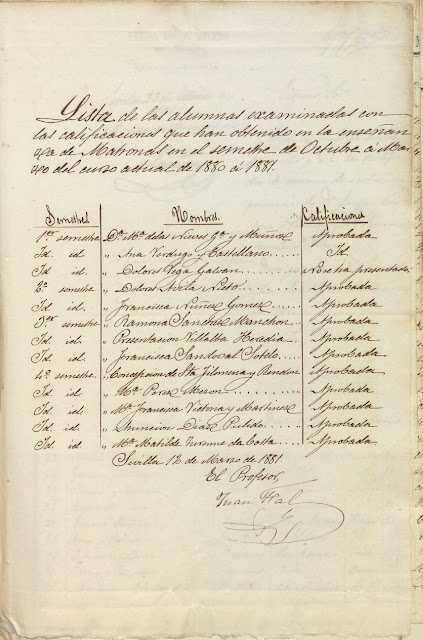 Lista de las alumnas examinadas con
las calificaciones que han obtenido en la enseñan
za de Matronas en el semestre de Octubre á Mar
zo del curso actual de 1880 á 1881.
Semestres Nombres Calificaciones
1er semestre Dª Mª de las Nieves Gª y Muñoz Aprobada
Id. id. „ Ana Verdugo y Castellano Id.
Id. id. „ Dolores Vega Galvan No se ha presentado
2º semestre „ Dolores Nieto Aprobada
Id. id. „ Francisca Nuñez Gomez Aprobada
3er semestre „ Ramona Sanchez Manchon Aprobada
Id. id. „ Presentacion Villalba Heredia Aprobada
Id. id. „ Francisca Sandoval Sotelo Aprobada
4º semestre Concepcion de Sta Filomena y Rendon Aprobada
Id. id. „ Mª Perez Meron Aprobada
Id. id. „ Mª Francisca y Martinez Aprobada
Id. id. „ Asuncion Diaz Pulido Aprobada
Id. id. „ Mª Matilde da Costa Aprobada
Sevilla 12 de Marzo de 1881.
El Profesor,
Juan